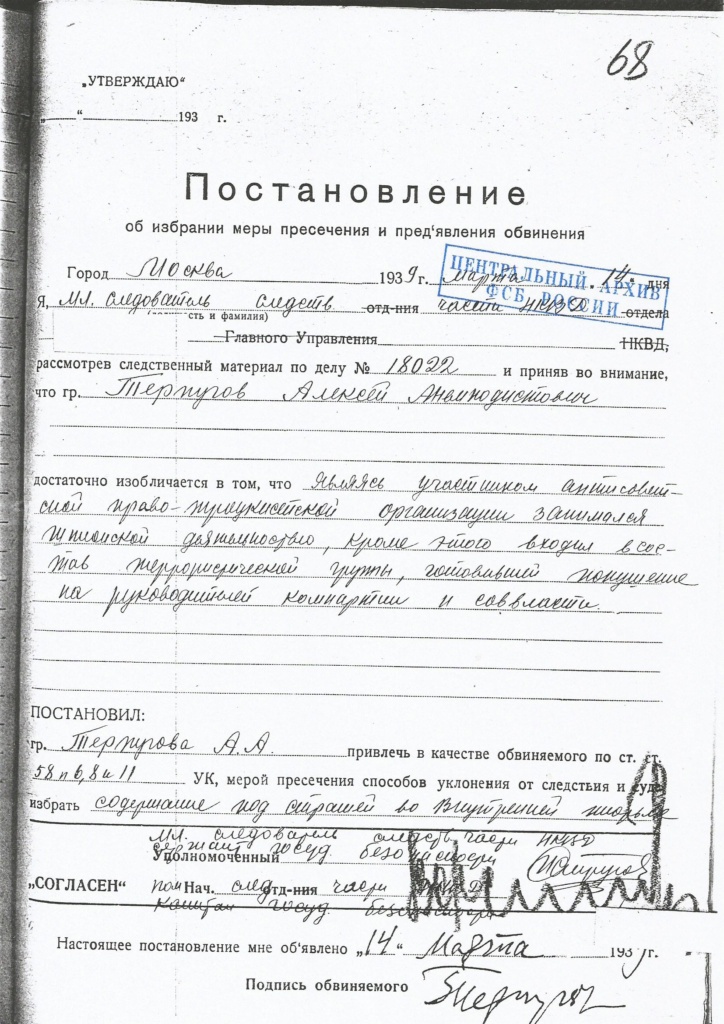 68
„УТВЕРЖДАЮ“
„ “ 193 г.
Постановление
об избрании меры пресечения и пред‘явления обвинения
Город Москва 1939 г. марта 14 дня
ЦЕНТРАЛЬНЫЙ АРХИВ
ФСБ РОССИИ
Я, Мл. следователь следств отд-ния части НКВД отдела
сть и фамилия)
Главного Управления НКВД,
рассмотрев следственный материал по делу № 18022 и приняв во внимание,
что гр. Терпугов Алексей Анемподистович
достаточно изобличается в том, что являясь участником антисовет-
ской право-троцкистской организации занимался
шпионской деятельностью, кроме этого входил в сос-
тав террористической группы, готовившей покушение
на руководителей компартии и соввласти.
ПОСТАНОВИЛ:
гр. Терпугова А.А. привлечь в качестве обвиняемого по ст. ст.
58 п 6, 8 и 11 УК, мерой пресечения способов уклонения от следствия и суда
избрать содержание под стражей во Внутренней тюрьме
Мл. следователь следств части НКВД
сержант госуд. безопасности
Уполномоченный
„СОГЛАСЕН“ пом Нач. след отд-ния части НКВД
Капитан госуд. безопасности
Настоящее постановление мне об‘явлено „14“ Марта 1939 г.
Подпись обвиняемого Терпугов